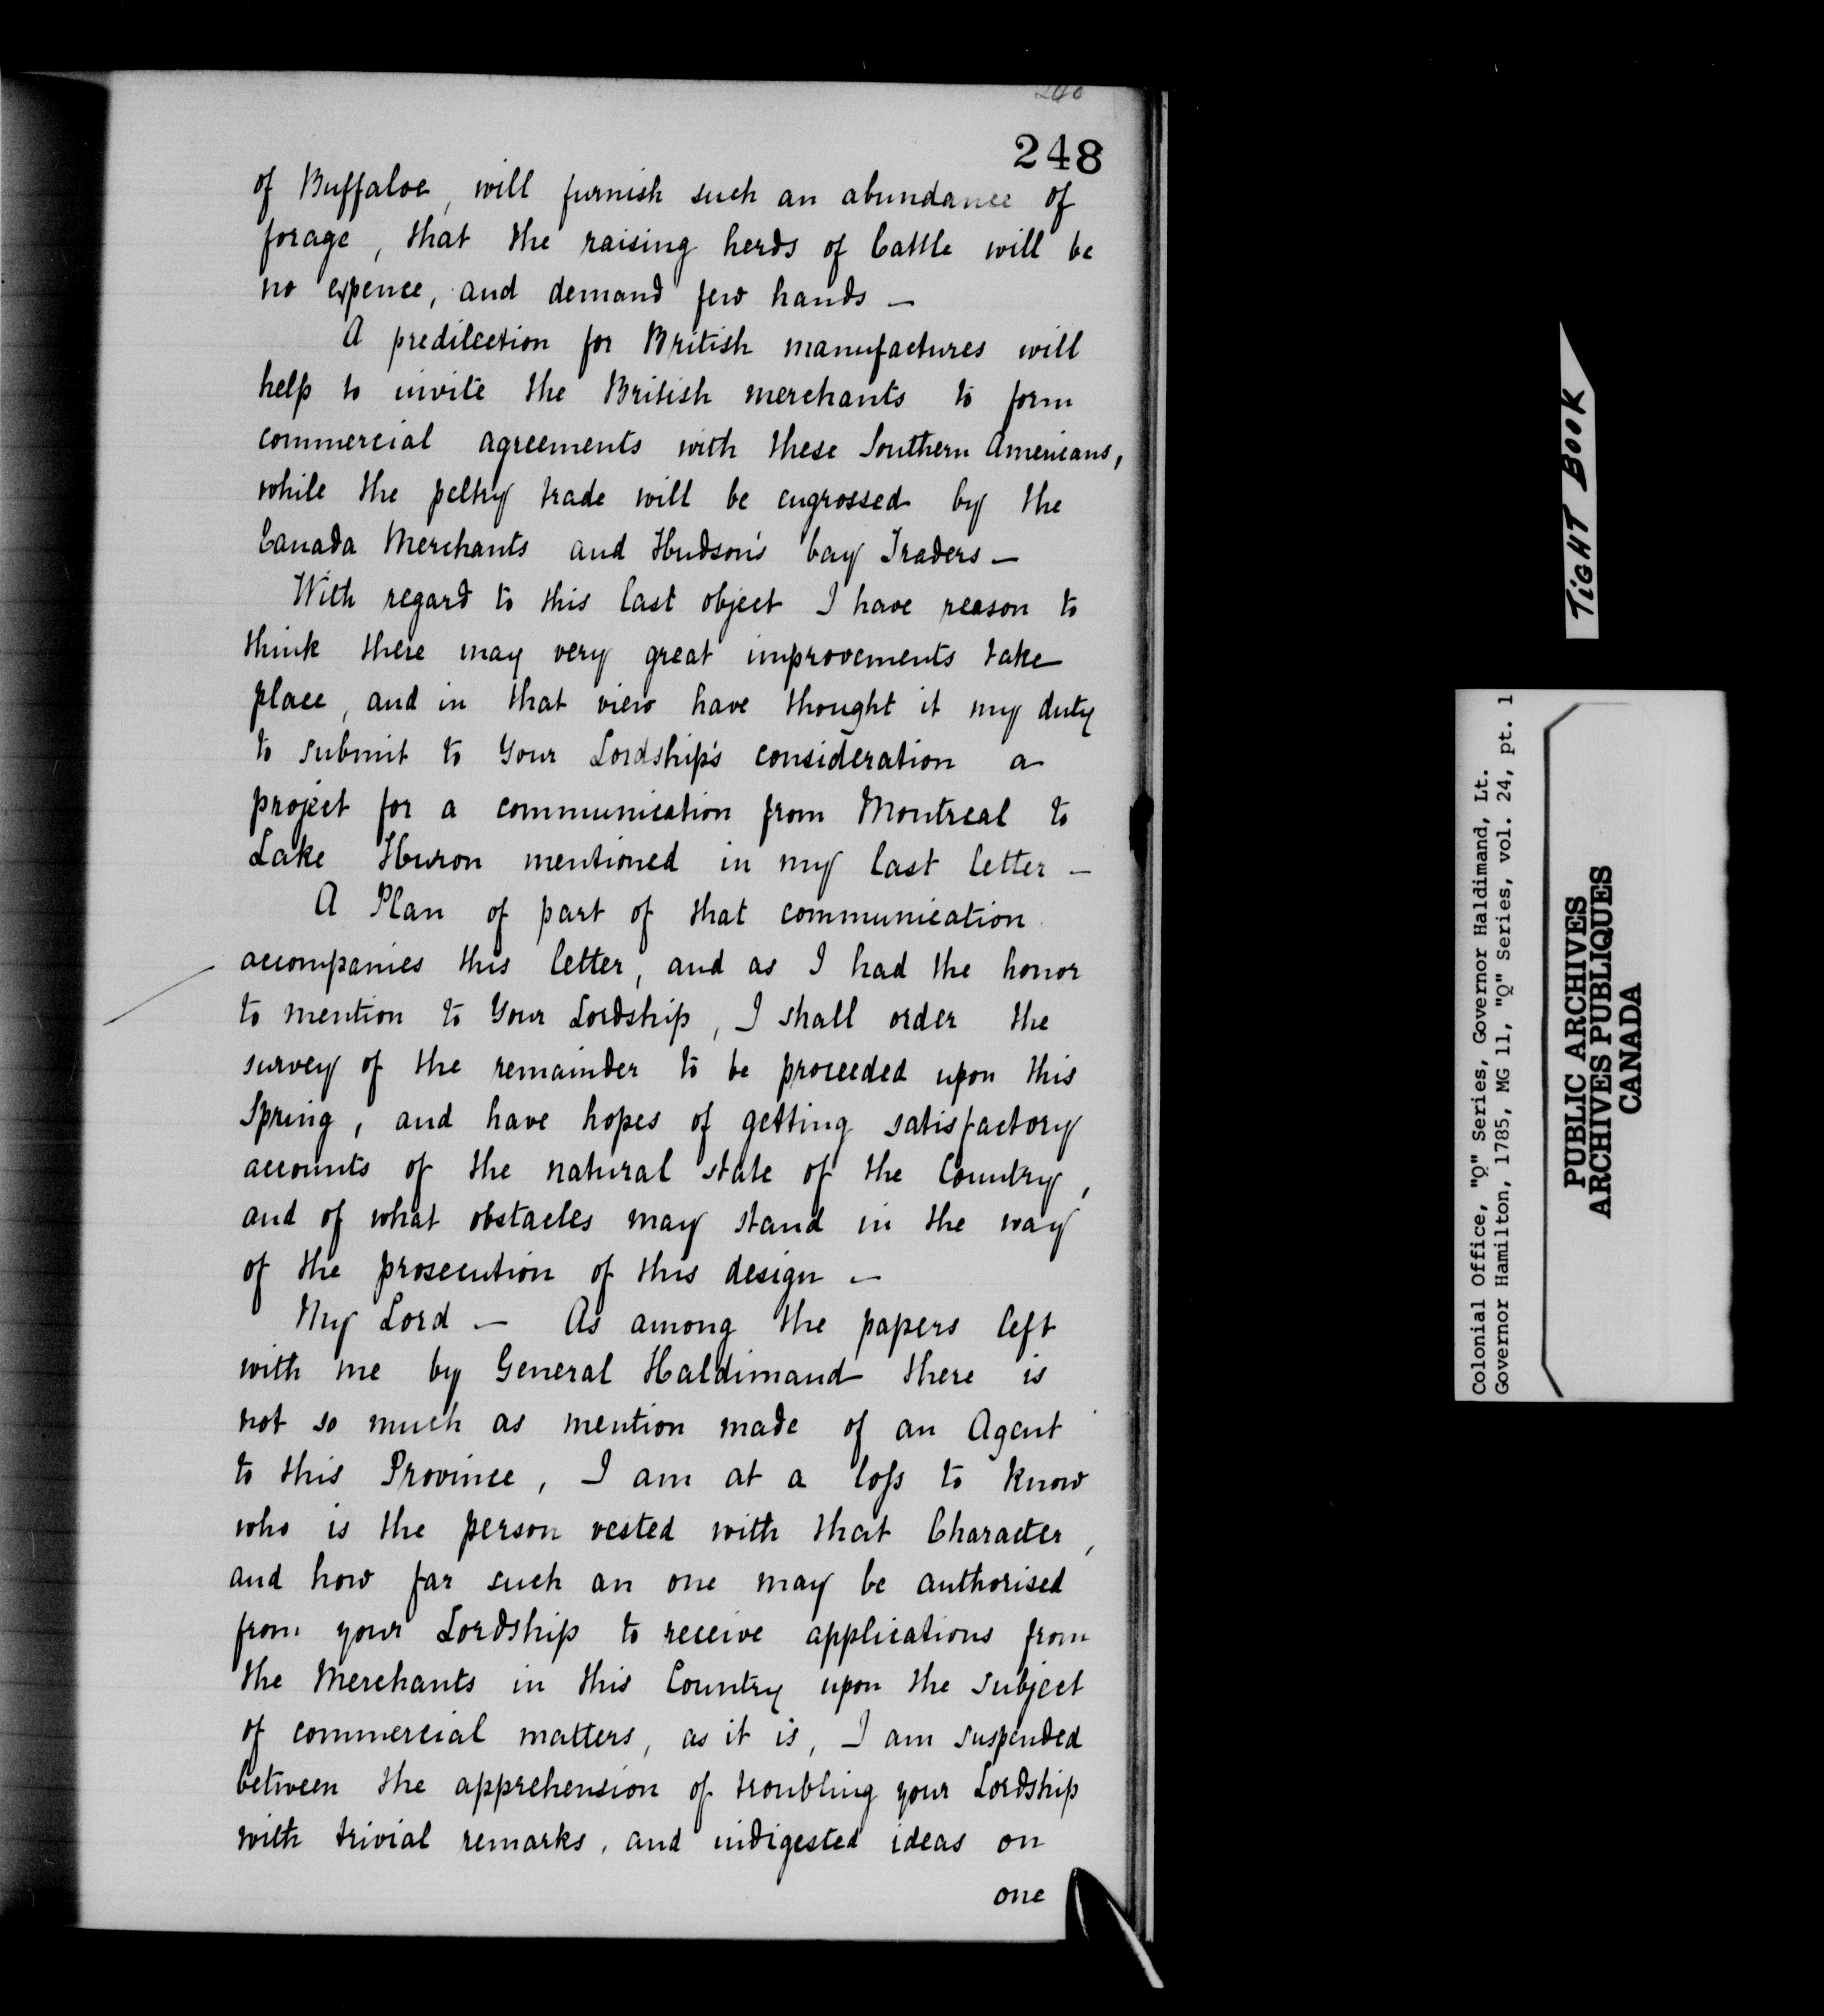 248
of Buffaloe, will furnish such an abundance of
forage, that the raising herds of Cattle will be
no expence, and demand few hands —
A predilection for British manufactures will
help to invite the British merchants to form
commercial agreements with these Southern Americans,
while the peltry trade will be engrossed by the
Canada Merchants and Hudson's bay Traders —
With regard to this last object I have reason to
think there may very great improvements take
place, and in that view have thought it my duty
to submit to Your Lordship's consideration a
project for a communication from Montreal to
Lake Huron mentioned in my last letter —
A Plan of part of that communication
accompanies this letter, and as I had the honor
to mention to Your Lordship, I shall order the
survey of the remainder to be proceeded upon this
Spring, and have hopes of getting satisfactory
accounts of the natural state of the Country,
and of what obstacles may stand in the way
of the prosecution of this design —
My Lord — As among the papers left
with me by General Haldimand there is
not so much as mention made of an Agent
to this Province, I am at a loss to know
who is the person vested with that Character,
and how far such an one may be authorised
from your Lordship to receive applications from
the Merchants in this Country upon the subject
of commercial matters, as it is, I am suspended
between the apprehension of troubling your Lordship
with trivial remarks, and indigested ideas on
one
TIGHT BOOK
Colonial Office, "Q" Series, Governor Haldimand, Lt.
Governor Hamilton, 1785, MG 11, "Q" Series, vol. 24, pt. 1
PUBLIC ARCHIVES
ARCHIVES PUBLIQUES
CANADA